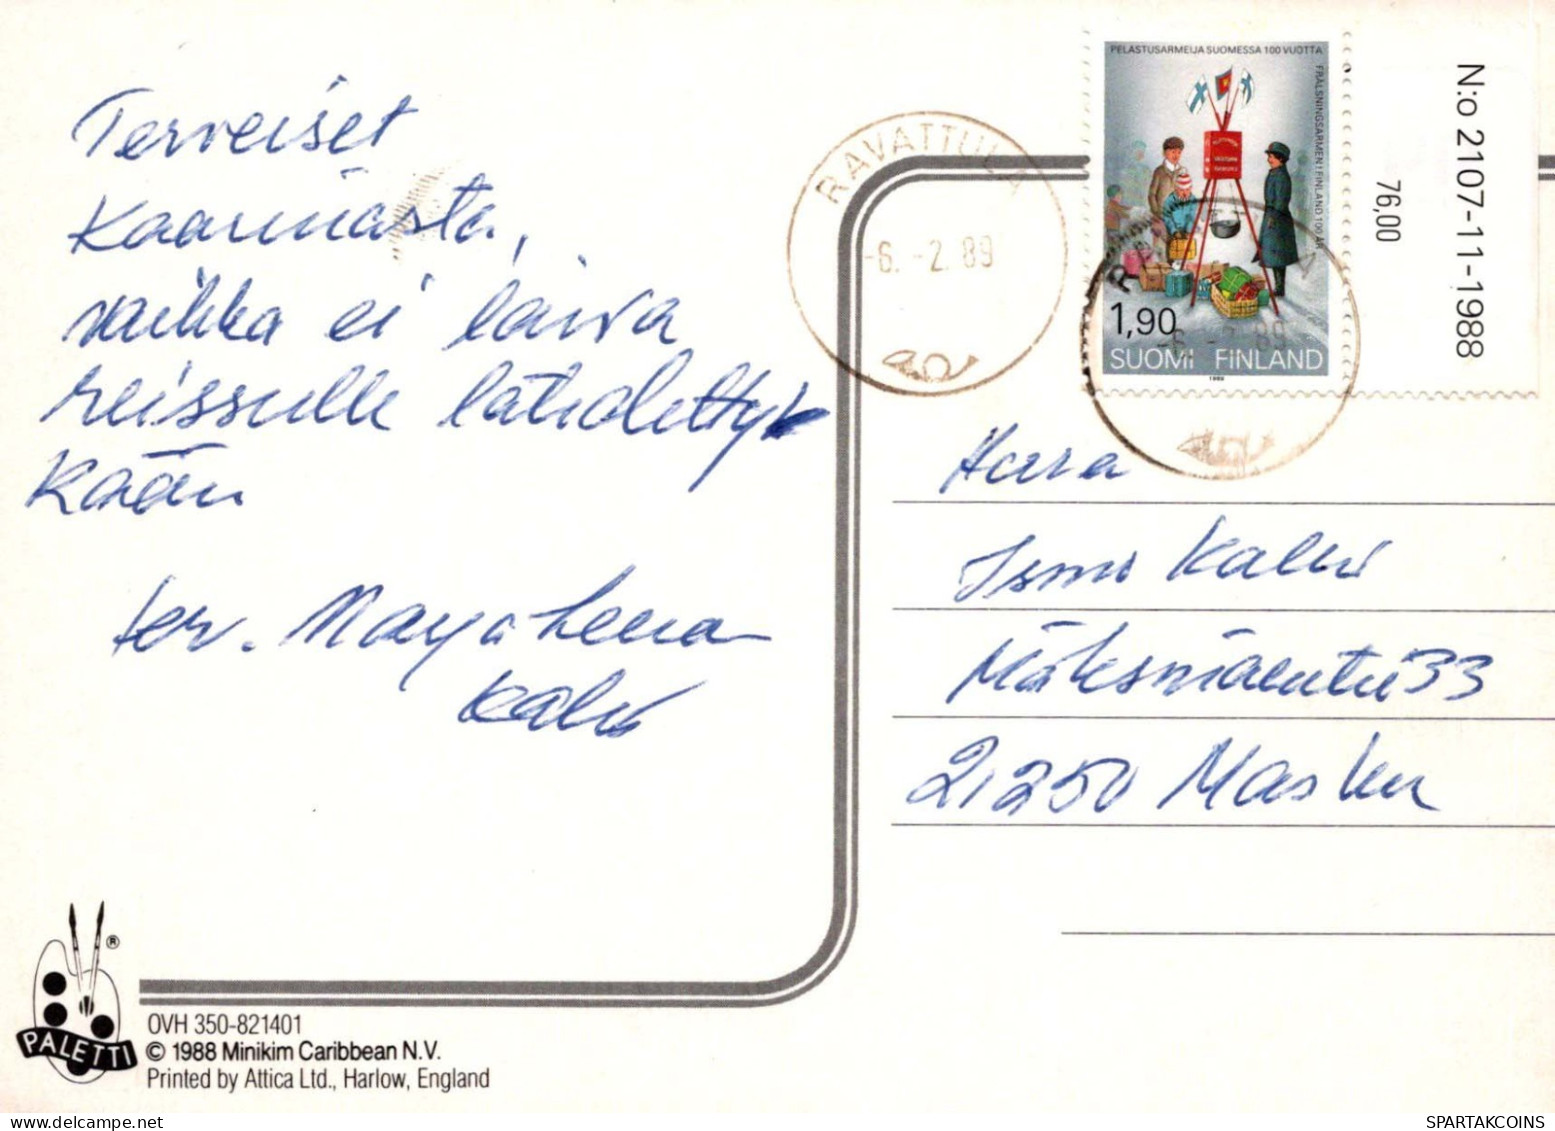 Terveiset
Kaarinasta,
vaikka ei laiva
reissulle lähdetty
kään
terv. Marja-Leena
RAVATTULA
-6.-2.89
PELASTUSARMEIJA SUOMESSA 100 VUOTTA
FRÄLSNINGSARMEN I FINLAND 100 ÅR
1,90
SUOMI FINLAND
1989
-6.-2.89
76,00
N:o 2107-11-1988
Ismo
33
21250 Masku
PALETTI
®
OVH 350-821401
© 1988 Minikim Caribbean N.V.
Printed by Attica Ltd., Harlow, England
SPARTAKCOINS